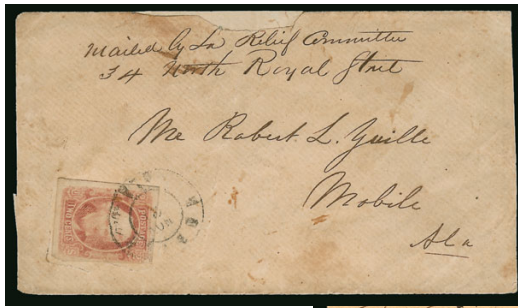 Mailed by La Relief Committee
34 North Royal Street
Mr Robert L. Yuille
Mobile
Ala